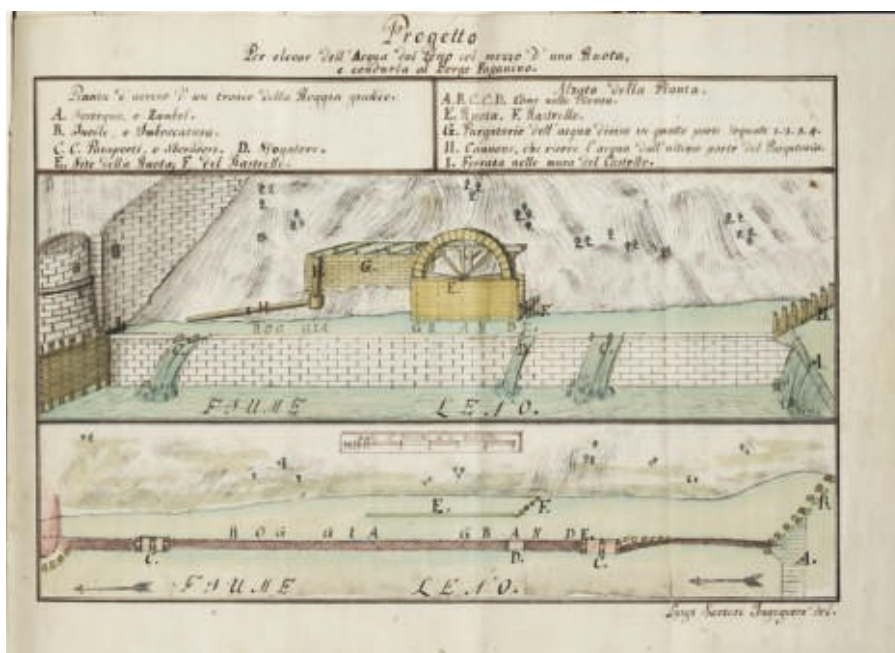 Progetto
Per elevar dell'Acqua dal Leno col mezzo d'una Ruota,
e condurla al
Pianta e di un tronco della Roggia grande.
A.
B. e Imboccatura.
C. C. e D. Sfogatore.
E. Sito della Ruota, F. del Rastrello.
Alzato della Pianta.
A. B. C. C. D. Come nella Pianta.
E. Ruota. F. Rastrello.
G. Purgatorio dell'acqua diviso in quatro parti segnate 1. 2. 3. 4.
H. Cannone, che riceve l'acqua dall'ultima parte del Purgatorio.
I. Ferrata nelle mura del Castello.
H.
G.
E.
F.
B.
H
ROGGIA GRANDE.
C.
D.
C.
A
FIUME LENO.
E. F.
B
ROGGIA GRANDE.
C. D. C. A.
FIUME LENO.
Luigi Ingegnere del.